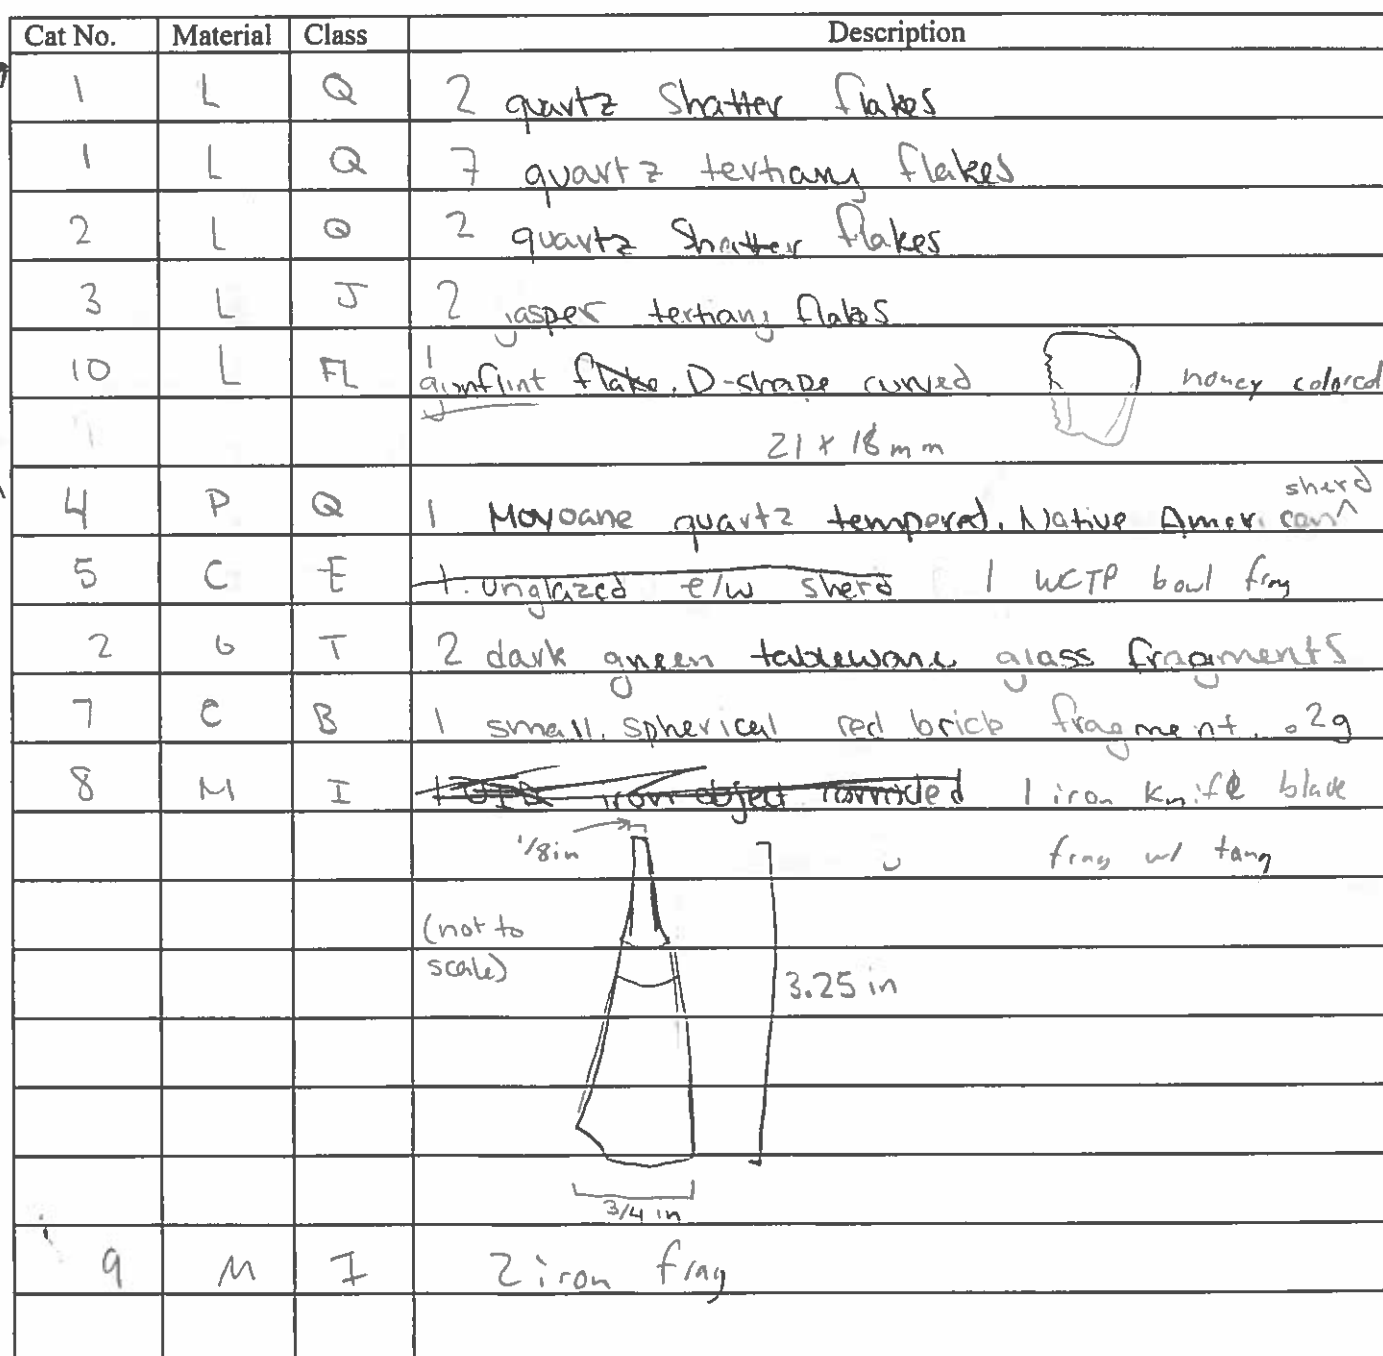 Cat No. Material Class Description
1 L Q 2 quartz shatter flakes
1 L Q 7 quartz tertiary flakes
2 L Q 2 quartz shatter flakes
3 L J 2 jasper tertiary flakes
10 L FL 1 gunflint flake. D-shape curved honey colored
21 x 18 mm
4 P Q 1 Moyoane quartz tempered. Native American sherd
5 C E 1. unglazed e/w sherd 1 WCTP bowl frag
2 G T 2 dark green tableware glass fragments
7 C B 1 small, spherical red brick fragment. .2g
8 M I 1 iron object corroded 1 iron knife blade
1/8in frag w/ tang
(not to
scale)
3.25 in
3/4 in
9 M I 2 iron frag